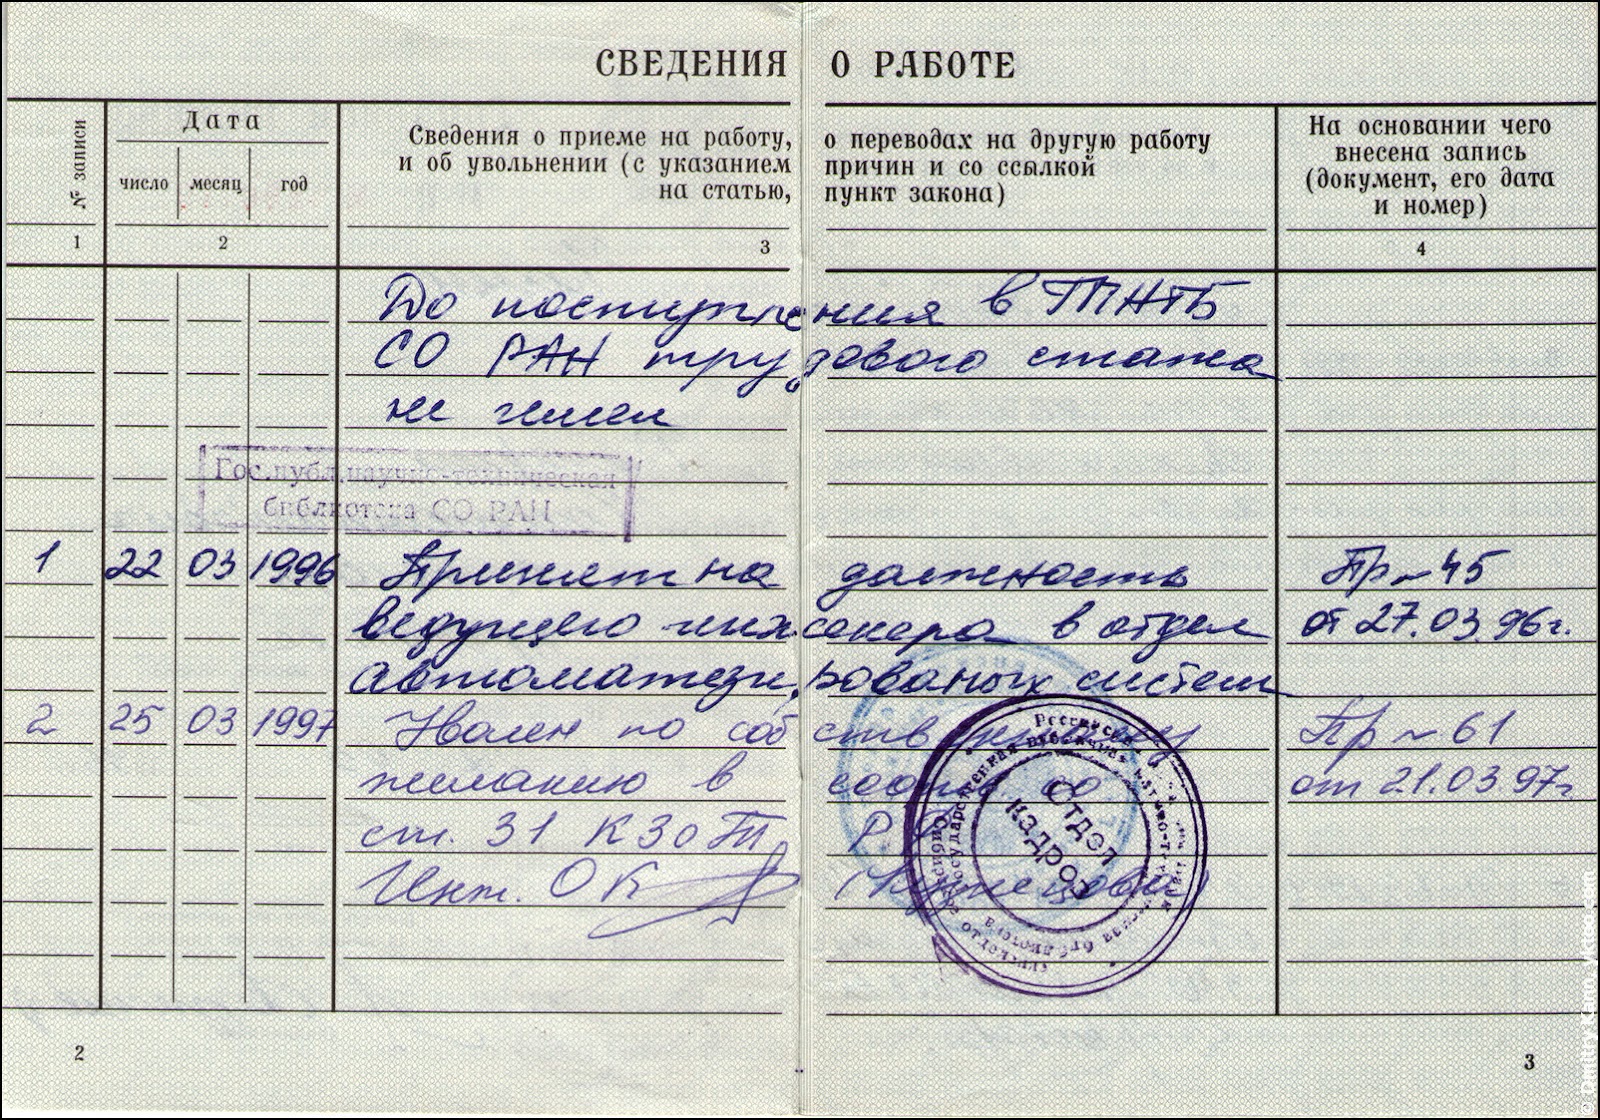 СВЕДЕНИЯ О РАБОТЕ
№ записи
Дата
число месяц год
Сведения о приеме на работу, о переводах на другую работу
и об увольнении (с указанием причин и со ссылкой
на статью, пункт закона)
На основании чего
внесена запись
(документ, его дата
и номер)
1 2 3 4
До поступления в ГПНТБ
СО РАН трудового стажа
не имел
Гос.публ.научно-техническая
библиотека СО РАН
1 22 03 1996 Принят на должность Пр № 45
ведущего инженера в отдел от 27.03.96г.
автоматизированых систем
2 25 03 1997 Уволен по собственному Пр № 61
желанию в от 21.03.97г.
ст. 31 КЗоТ Р
Инт. ОК
Отдел
кадров
2
3
© Dmitry Kann, yktoo.com